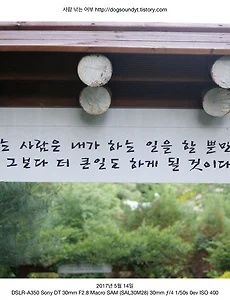 사람 낚는 어부 http://dogsoundyt.tistory.com
는 사람은 내가 하는 일을 할 뿐만
그보다 더 큰일도 하게 될 것이다
2017년 5월 14일
DSLR-A350 Sony DT 30mm F2.8 Macro SAM (SAL30M28) 30mm ƒ/4 1/50s 0ev ISO 400